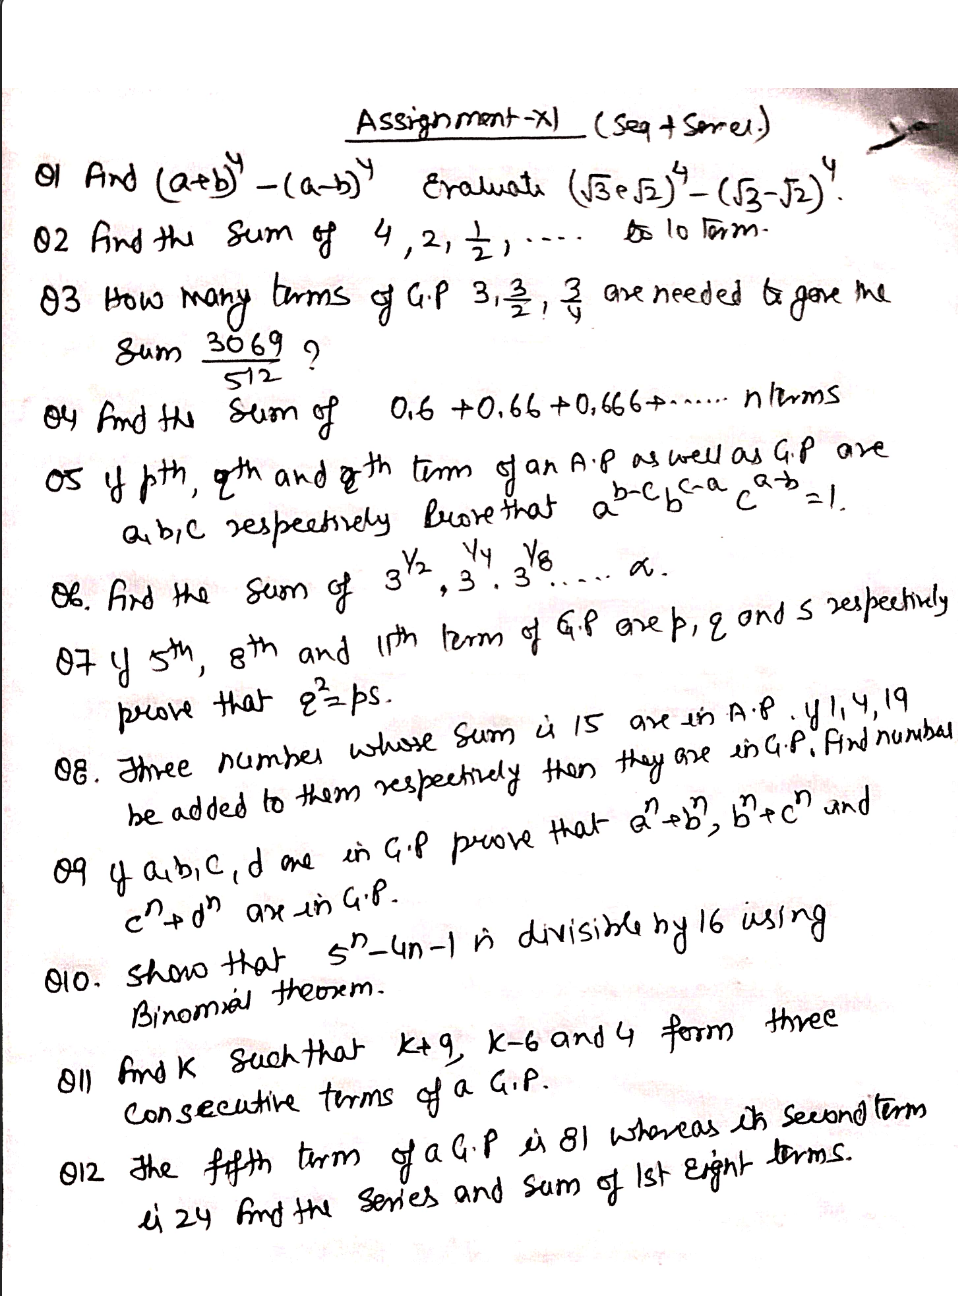 Assignment-XI (Seq + Series.)
Q1 Find (a+b)⁴ – (a–b)⁴ Evaluate (√3+√2)⁴ – (√3–√2)⁴.
Q2 Find the Sum of 4, 2, 1/2, .... to 10 Term.
Q3 How many terms of G.P 3, 3/2, 3/4 are needed to gave the
Sum 3069/512 ?
Q4 Find the Sum of 0.6 + 0.66 + 0.666 + ...... n terms
Q5 If pth, qth and rth term of an A.P as well as G.P are
a, b, c respectively Prove that a^(b-c) b^(c-a) c^(a-b) = 1.
Q6. Find the Sum of 3^(1/2), 3^(1/4). 3^(1/8)..... ∞.
Q7 If 5th, 8th and 11th term of G.P are p, q and s respectively
prove that q² = ps.
Q8. Three number whose sum is 15 are in A.P. If 1, 4, 19
be added to them respectively then they are in G.P. Find number
Q9 If a, b, c, d are in G.P prove that aⁿ+bⁿ, bⁿ+cⁿ and
cⁿ+dⁿ are in G.P.
Q10. Show that 5ⁿ–4n–1 is divisible by 16 using
Binomial theorem.
Q11 Find K Such that K+9, K–6 and 4 form three
Consecutive terms of a G.P.
Q12 The fifth term of a G.P is 81 whereas its second term
is 24 Find the Series and Sum of 1st Eight terms.